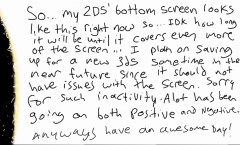 So... my 2DS' bottom screen looks
like this right now so... IDK how long
it will be until it covers even more
of the screen... I plan on saving
up for a new 3DS sometime in the
near future since it should not
have issues with the screen. Sorry
for such inactivity. Alot has been
going on both positive and negative.
Anyways have an awesome day!